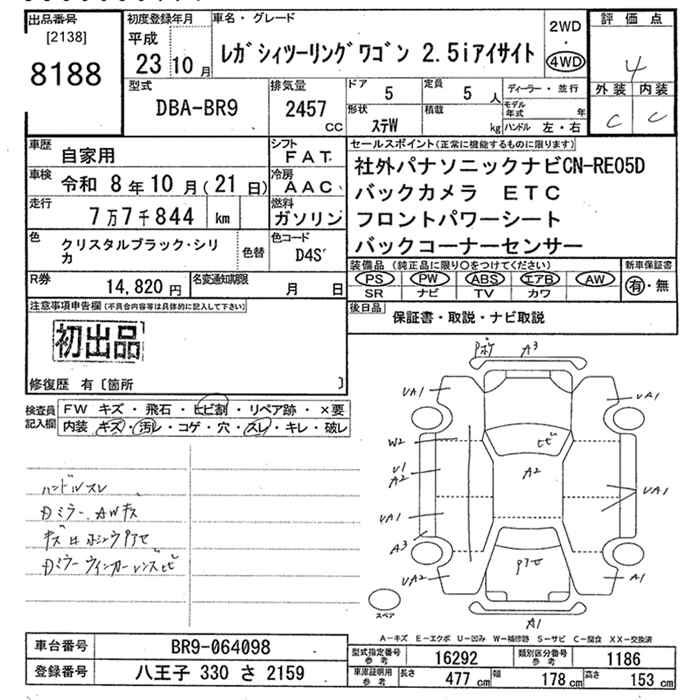 出品番号
[2138]
8188
初度登録年月
平成
23 10 月
車名・グレード
レガシィツーリングワゴン 2.5iアイサイト
2WD
・
4WD
評価点
4
外装 内装
C C
型式
DBA-BR9
排気量
2457
CC
ドア
5
定員
5 人
形状
ステW
積載
kg
ディーラー・並行
モデル
年式
年
ハンドル 左・右
車歴
自家用
車検
令和 8年10月(21日)
走行
7万7千844 km
色
クリスタルブラック・シリ
カ
色替
シフト
FAT
冷房
AAC
燃料
ガソリン
色コード
D4S
R券
14,820 円
名変通知期限
月 日
セールスポイント(正常に機能するものに限ります)
社外パナソニックナビCN-RE05D
バックカメラ ETC
フロントパワーシート
バックコーナーセンサー
装備品(純正品に限り○をつけてください)
PS PW ABS エアB AW
SR ナビ TV カワ
新車保証書
有・無
後日品
保証書・取説・ナビ取説
注意事項申告欄(不具合内容等は具体的に記入して下さい)
初出品
修復歴 有〔箇所 〕
検査員
記入欄
FW キズ・飛石・ヒビ割・リペア跡・×要
内装 キズ・汚レ・コゲ・穴・スレ・キレ・破レ
ハンドルスレ
Dミラー、AWキズ
Dミラーウィンカーレンズヒビ
A3
UA1
UA1
W2
ヒビ
U1
A2
A2
UA1
UA1
A3
UA2
A1
A1
スペア
A-キズ E-エクボ U-凹み W-補修跡 S-サビ C-腐食 XX-交換済
車台番号
BR9-064098
登録番号
八王子 330 さ 2159
型式指定番号
参考
16292
類別区分番号
参考
1186
車庫証明用
参考
長さ
477 cm
幅
178 cm
高さ
153 cm